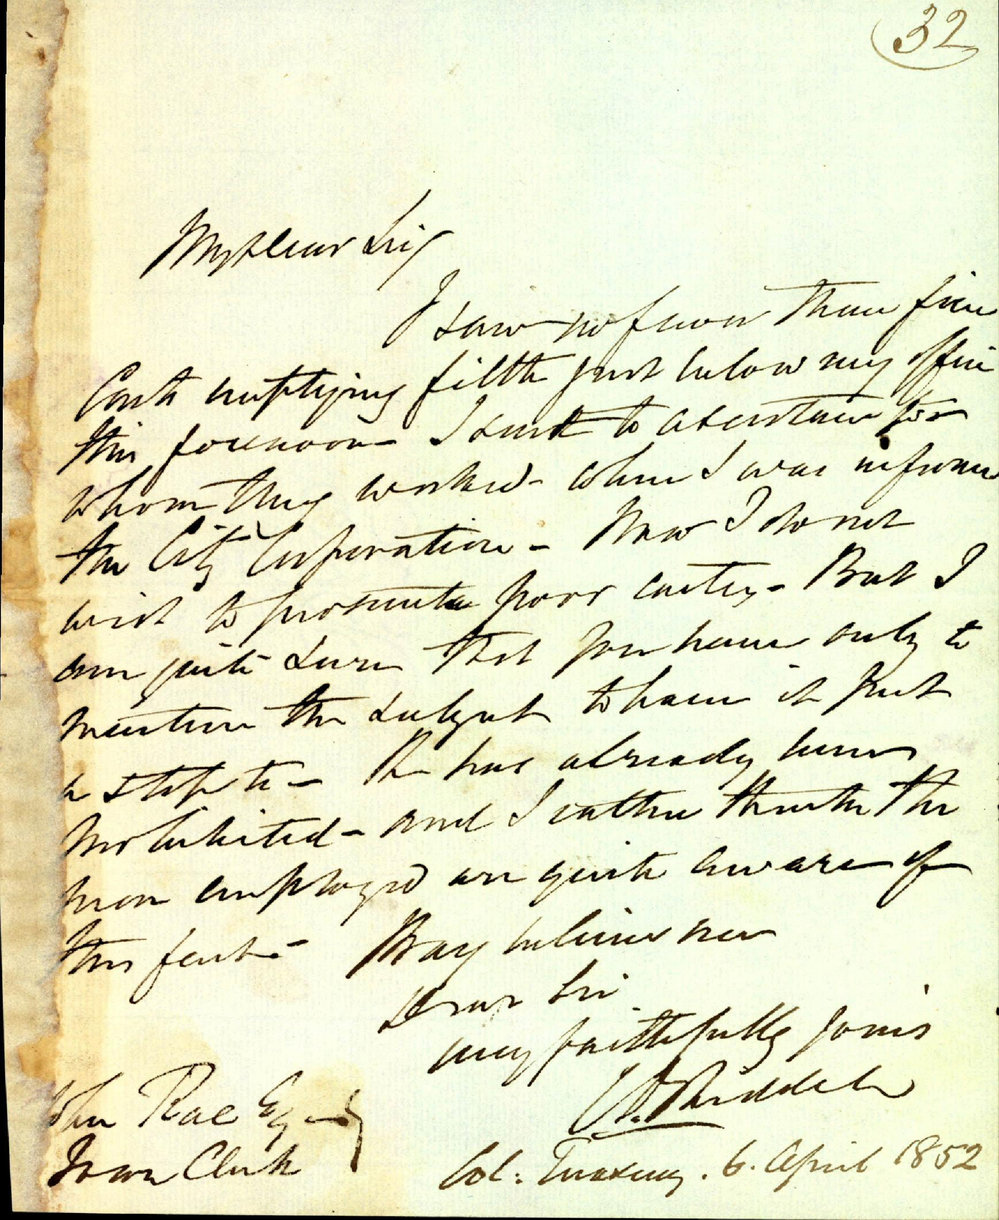 32
My dear Sir
I saw no fewer than five
Carts emptying filth just below my office
this forenoon - I sent to ascertain for
whom they worked - when I was informed
the City Corporation - Now I do not
wish to prosecute poor carters - But I
am quite sure that you have only to
mention the subject to have it put
a stop to - It has already been
prohibited - and I rather think the
men employed are quite aware of
this fact - Pray believe me
Dear Sir
very faithfully yours
C. D. Riddell
John Rae Esq
Town Clerk
Col: Treasury. 6. April 1852